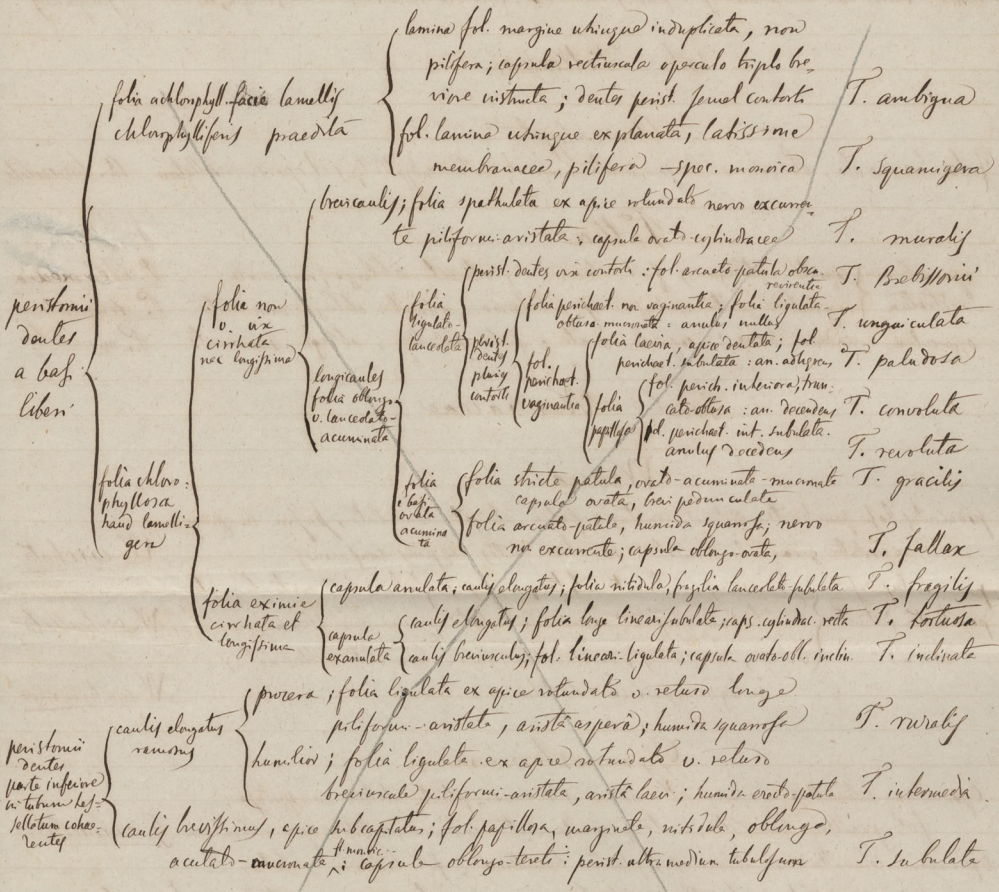 peristomii
dentes
a basi
liberi
folia achlorophyll. facie lamellis
chlorophylliferis praedita
lamina fol. margine utrinque induplicata, non
pilifera; capsula rectiuscula operculo triplo bre-
viore instructa; dentes perist. semel contorti T. ambigua
fol. lamina utrinque explanata, latissime
membranacea, pilifera – spec. monoica T. squamigera
folia chloro-
phyllosa
haud lamelli-
gera
folia non
v. vix
cirrhata
nec longissima
brevicaulis; folia spathulata ex apice rotundato nervo excurren-
te piliformi-aristata; capsula ovato-cylindracea T. muralis
longicaules
folia oblongo
v. lanceolato-
acuminata
folia
ligulato-
lanceolata
perist. dentes vix contorti: fol. arcuato-patula obscu-
revirentia T. Brebissonii
perist.
dentes
pluries
contorti
folia perichaet. non vaginantia; folia ligulata-
obtusa mucronata: anulus nullus T. unguiculata
fol.
perichaet.
vaginantia
folia laevia, apice dentata; fol
perichaet. subulata: an. adhaerens T. paludosa
folia
papillosa
fol. perich. interiora trun-
cato-obtusa: an. decedens T. convoluta
fol. perichaet. int. subulata.
anulus decedens T. revoluta
folia
e basi
ovata
acumina
ta
folia stricte patula, ovato-acuminata-mucronata T. gracilis
capsula ovata, brevi pedunculata
folia arcuato-patula, humida squarrosa; nervo
non excurrente; capsula oblongo-ovata, T. fallax
folia eximie
cirrhata et
longissima
capsula anulata; caulis elongatus; folia nitidula, fragilia lanceolato-subulata T. fragilis
capsula
exanulata
caulis elongatus; folia longe lineari-subulata; caps. cylindrac. recta T. tortuosa
caulis breviusculus; fol. lineari-ligulata; capsula ovato-obl. inclin. T. inclinata
peristomii
dentes
parte inferiore
in tubum tes-
sellatum cohae-
rentes
caulis elongatus
ramosus
procera; folia ligulata ex apice rotundato v. retuso longe
piliformi-aristata, aristâ asperâ; humida squarrosa T. ruralis
humilior; folia ligulata ex apice rotundato v. retuso
breviuscule piliformi-aristata, aristâ laevi; humida erecto-patula T. intermedia
caulis brevissimus, apice subcapitatus; fol. papillosa, marginata, nitidula, oblonga,
acutato-mucronata; capsula oblongo-tereti: perist. ultra medium tubulosum T. subulata